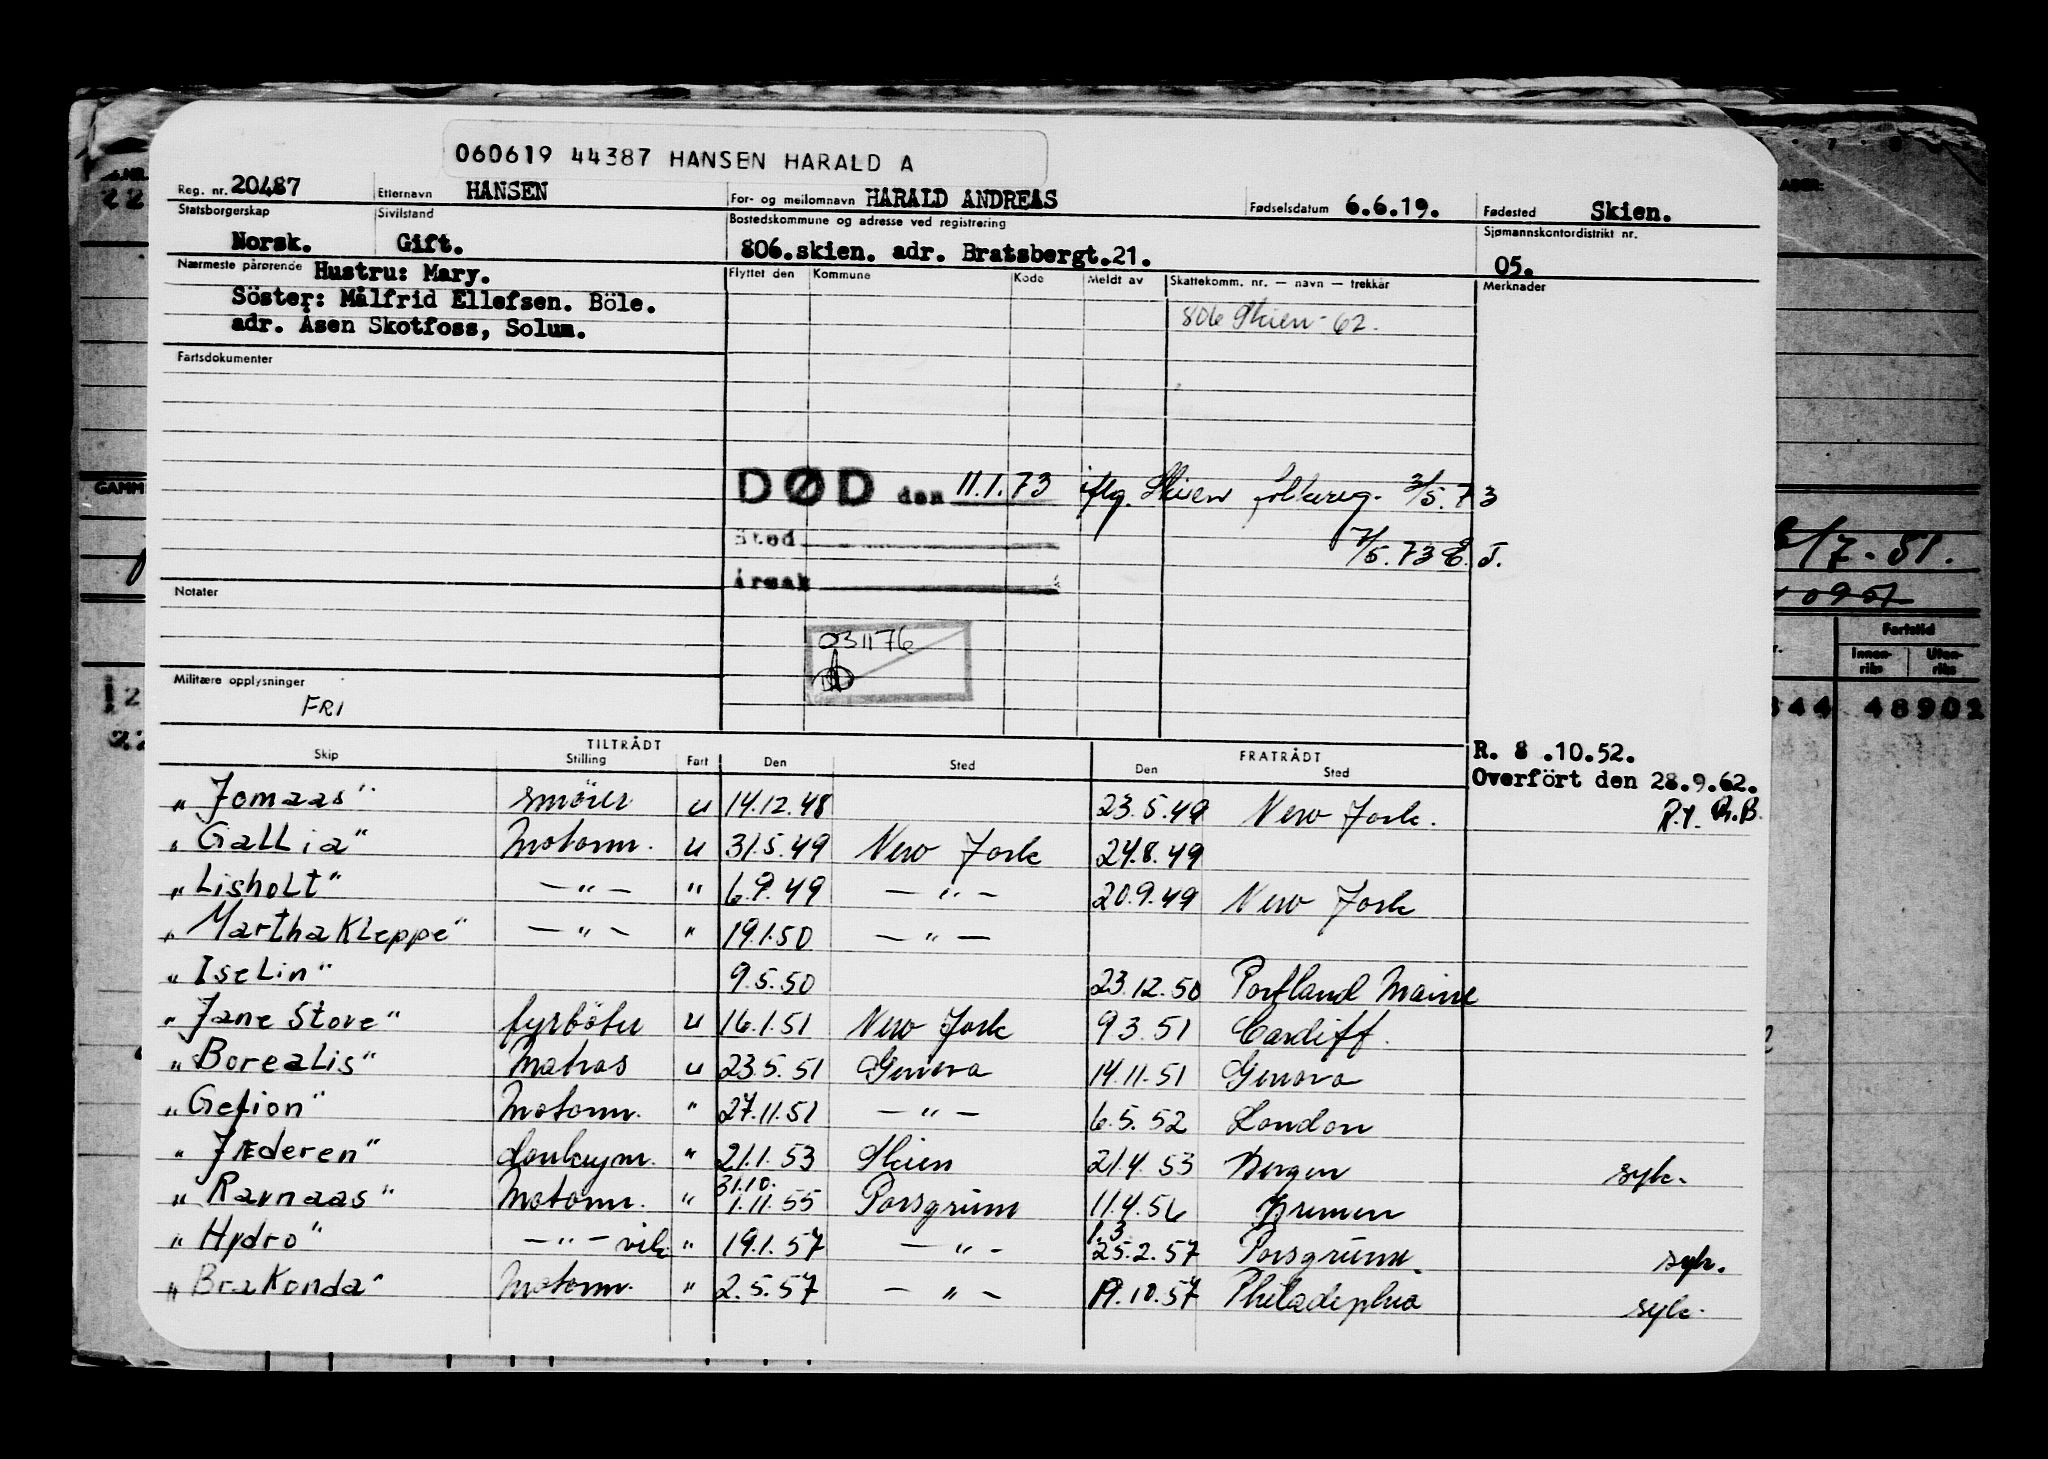 060619 44387 HANSEN HARALD A
Reg. nr. 20487 Etternavn HANSEN For- og mellomnavn HARALD ANDREAS Fødselsdatum 6.6.19. Fødested Skien.
Statsborgerskap Sivilstand Bostedskommune og adresse ved registrering Sjømannskontordistrikt nr.
Norsk. Gift. 806.skien. adr. Bratsbergt.21. 05.
Nærmeste pårørende Hustru: Mary. Flyttet den Kommune Kode Meldt av Skattekomm. nr. — navn — trekkår Merknader
Söster: Målfrid Ellefsen. Böle. 806 Skien - 62.
adr. Åsen Skotfoss, Solum.
Fartsdokumenter
DØD den 11.1.73 iflg. Skien folkereg. 3/5.73
Sted 7/5.73 E.J.
Årsak
Notater
031176
Militære opplysninger
FRI
TILTRÅDT FRATRÅDT R. 8 .10.52.
Skip Stilling Fart Den Sted Den Sted Overfört den 28.9.62.
R.B.
"Jomaas" smörer u 14.12.48 23.5.49 New York.
"Gallia" Motorm. u 31.5.49 New York 24.8.49
"Lisholt" — " — " 6.9.49 — " — 20.9.49 New York
"Martha Kleppe" — " — " 19.1.50 — " —
"Iselin" 9.5.50 23.12.50 Portland Maine
"Jane Stove" fyrböter u 16.1.51 New York 9 3.51 Cardiff.
"Borealis" Matros u 23.5.51 Genova 14.11.51 Genova
"Gefion" Motorm. " 27.11.51 — " — 6.5.52 London
"Jæderen" donkeym. " 21.1.53 Skien 21.4.53 Bergen syk.
"Ravnaas" Motorm. " 31.10. 1.11.55 Porsgrunn 11.4.56 Bremen
"Hydro" — " — vik " 19.1.57 — " — 1.3 25.2.57 Porsgrunn. syk.
"Brakonda" Motorm. " 2.5.57 — " — 19.10.57 Philadelphia syk.
GAMM
/7-51.
Fartstid
Innenriks Utenriks
344 48902